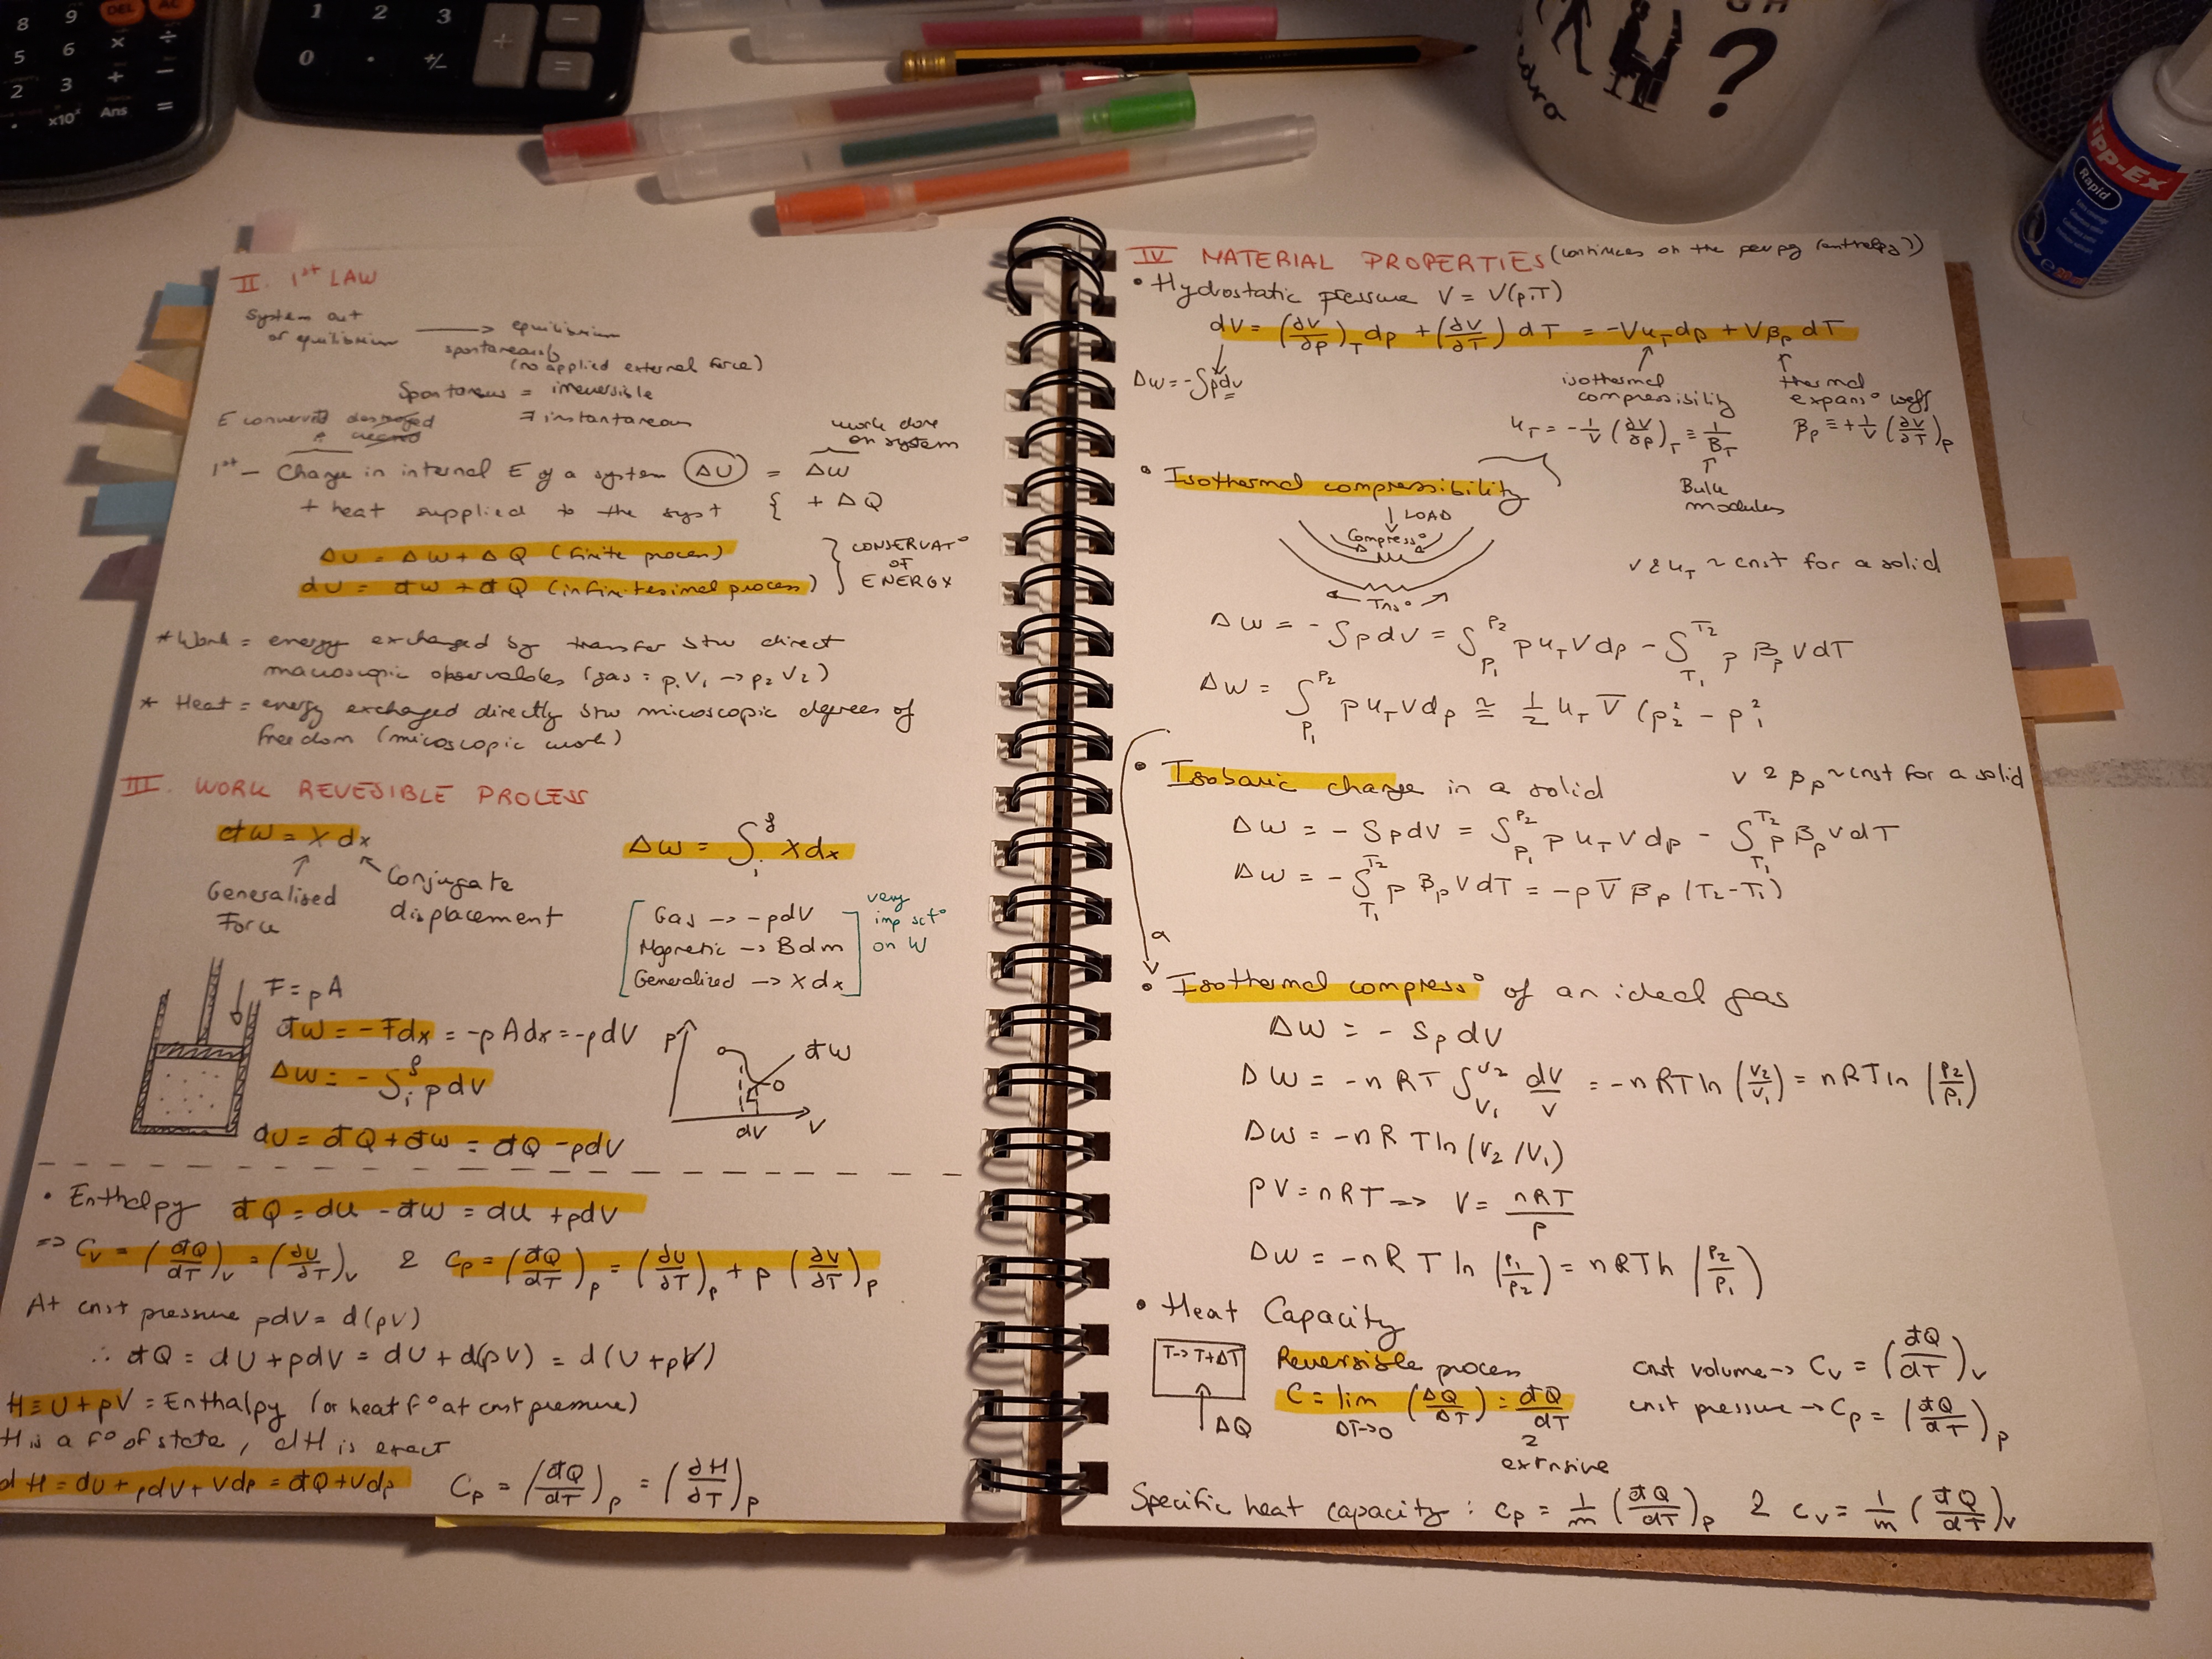 II. 1st LAW
system out of equilibrium → equilibrium
spontaneously (no applied external force)
Spontaneous = irreversible
≠ instantaneous
1st - Change in internal E of a system (ΔU) = ΔW work done on system
+ heat supplied to the syst { + ΔQ
ΔU = ΔW + ΔQ (finite process)
dU = đW + đQ (infinitesimal process) } CONSERVAT° OF ENERGY
* Work = energy exchanged by transfer btw direct
macroscopic observables (gas = p1V1 → p2V2)
* Heat = energy exchanged directly btw microscopic degrees of
freedom (microscopic work)
III. WORK REVESIBLE PROCESS
đW = X dx ΔW = ∫i^f X dx
Generalised Force Conjugate displacement
[Gas → -pdV
Magnetic → Bdm
Generalized → Xdx] very imp sct° on W
F = pA
đW = -Fdx = -pAdx = -pdV
ΔW = -∫i^f pdV
p đW
dV V
dU = đQ + đW = đQ - pdV
• Enthalpy đQ = dU - đW = dU + pdV
=> CV = (đQ/dT)V = (∂U/∂T)V 2 Cp = (đQ/dT)p = (∂U/∂T)p + p(∂V/∂T)p
At cnst pressure pdV = d(pV)
∴ đQ = dU + pdV = dU + d(pV) = d(U + pV)
H ≡ U + pV = Enthalpy (or heat f° at cnst pressure)
H is a f° of state, dH is exact
dH = dU + pdV + Vdp = đQ + Vdp Cp = (đQ/dT)p = (∂H/∂T)p
IV MATERIAL PROPERTIES
• Hydrostatic pressure V = V(p,T)
dV = (∂V/∂p)T dp + (∂V/∂T) dT = -VκTdp + VβpdT
ΔW = -∫pdV
isothermal compressibility thermal expans° coeff
κT = -1/V (∂V/∂p)T ≡ 1/BT βp ≡ +1/V (∂V/∂T)p
Bulk modulus
• Isothermal compressibility
V & κT ~ cnst for a solid
↓ LOAD
Compress°
ΔW = -∫pdV = ∫p1^p2 pκTVdp - ∫T1^T2 pβpVdT
ΔW = ∫p1^p2 pκTVdp ≅ 1/2 κT V̅ (p2² - p1²
• Isobaric change in a solid V 2 βp ~ cnst for a solid
ΔW = -∫pdV = ∫p1^p2 pκTVdp - ∫T1^T2 pβpVdT
ΔW = -∫T1^T2 pβpVdT = -pV̅βp(T2-T1)
• Isothermal compress° of an ideal gas
ΔW = -∫pdV
ΔW = -nRT ∫V1^V2 dV/V = -nRTln(V2/V1) = nRTln(P2/P1)
ΔW = -nRTln(V2/V1)
PV = nRT → V = nRT/P
ΔW = -nRTln(P1/P2) = nRTln(P2/P1)
• Heat Capacity
T → T+ΔT
ΔQ
Reversible process
C = lim ΔT→0 (ΔQ/ΔT) = đQ/dT
extensive
cnst volume → CV = (đQ/dT)V
cnst pressure → Cp = (đQ/dT)p
Specific heat capacity : cp = 1/m (đQ/dT)p 2 cV = 1/m (đQ/dT)V
8 9 DEL AC
5 6 × ÷
2 3 + −
. x10ˣ Ans =
1 2 3 −
0 . +/- + =
?
Tipp-Ex
Rapid